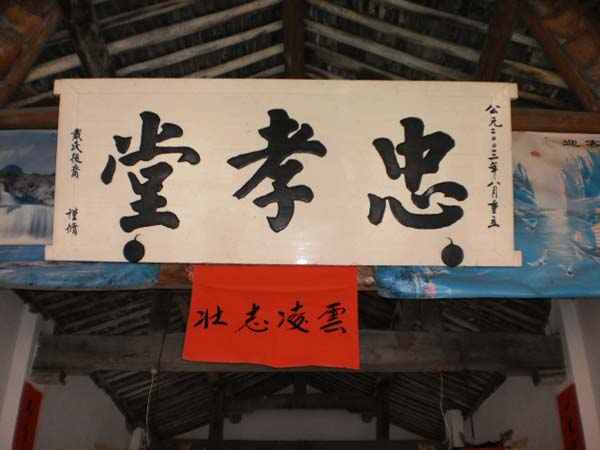 公元二〇〇三年八月重立
忠孝堂
戴氏後裔 謹脩
雲凌志壯